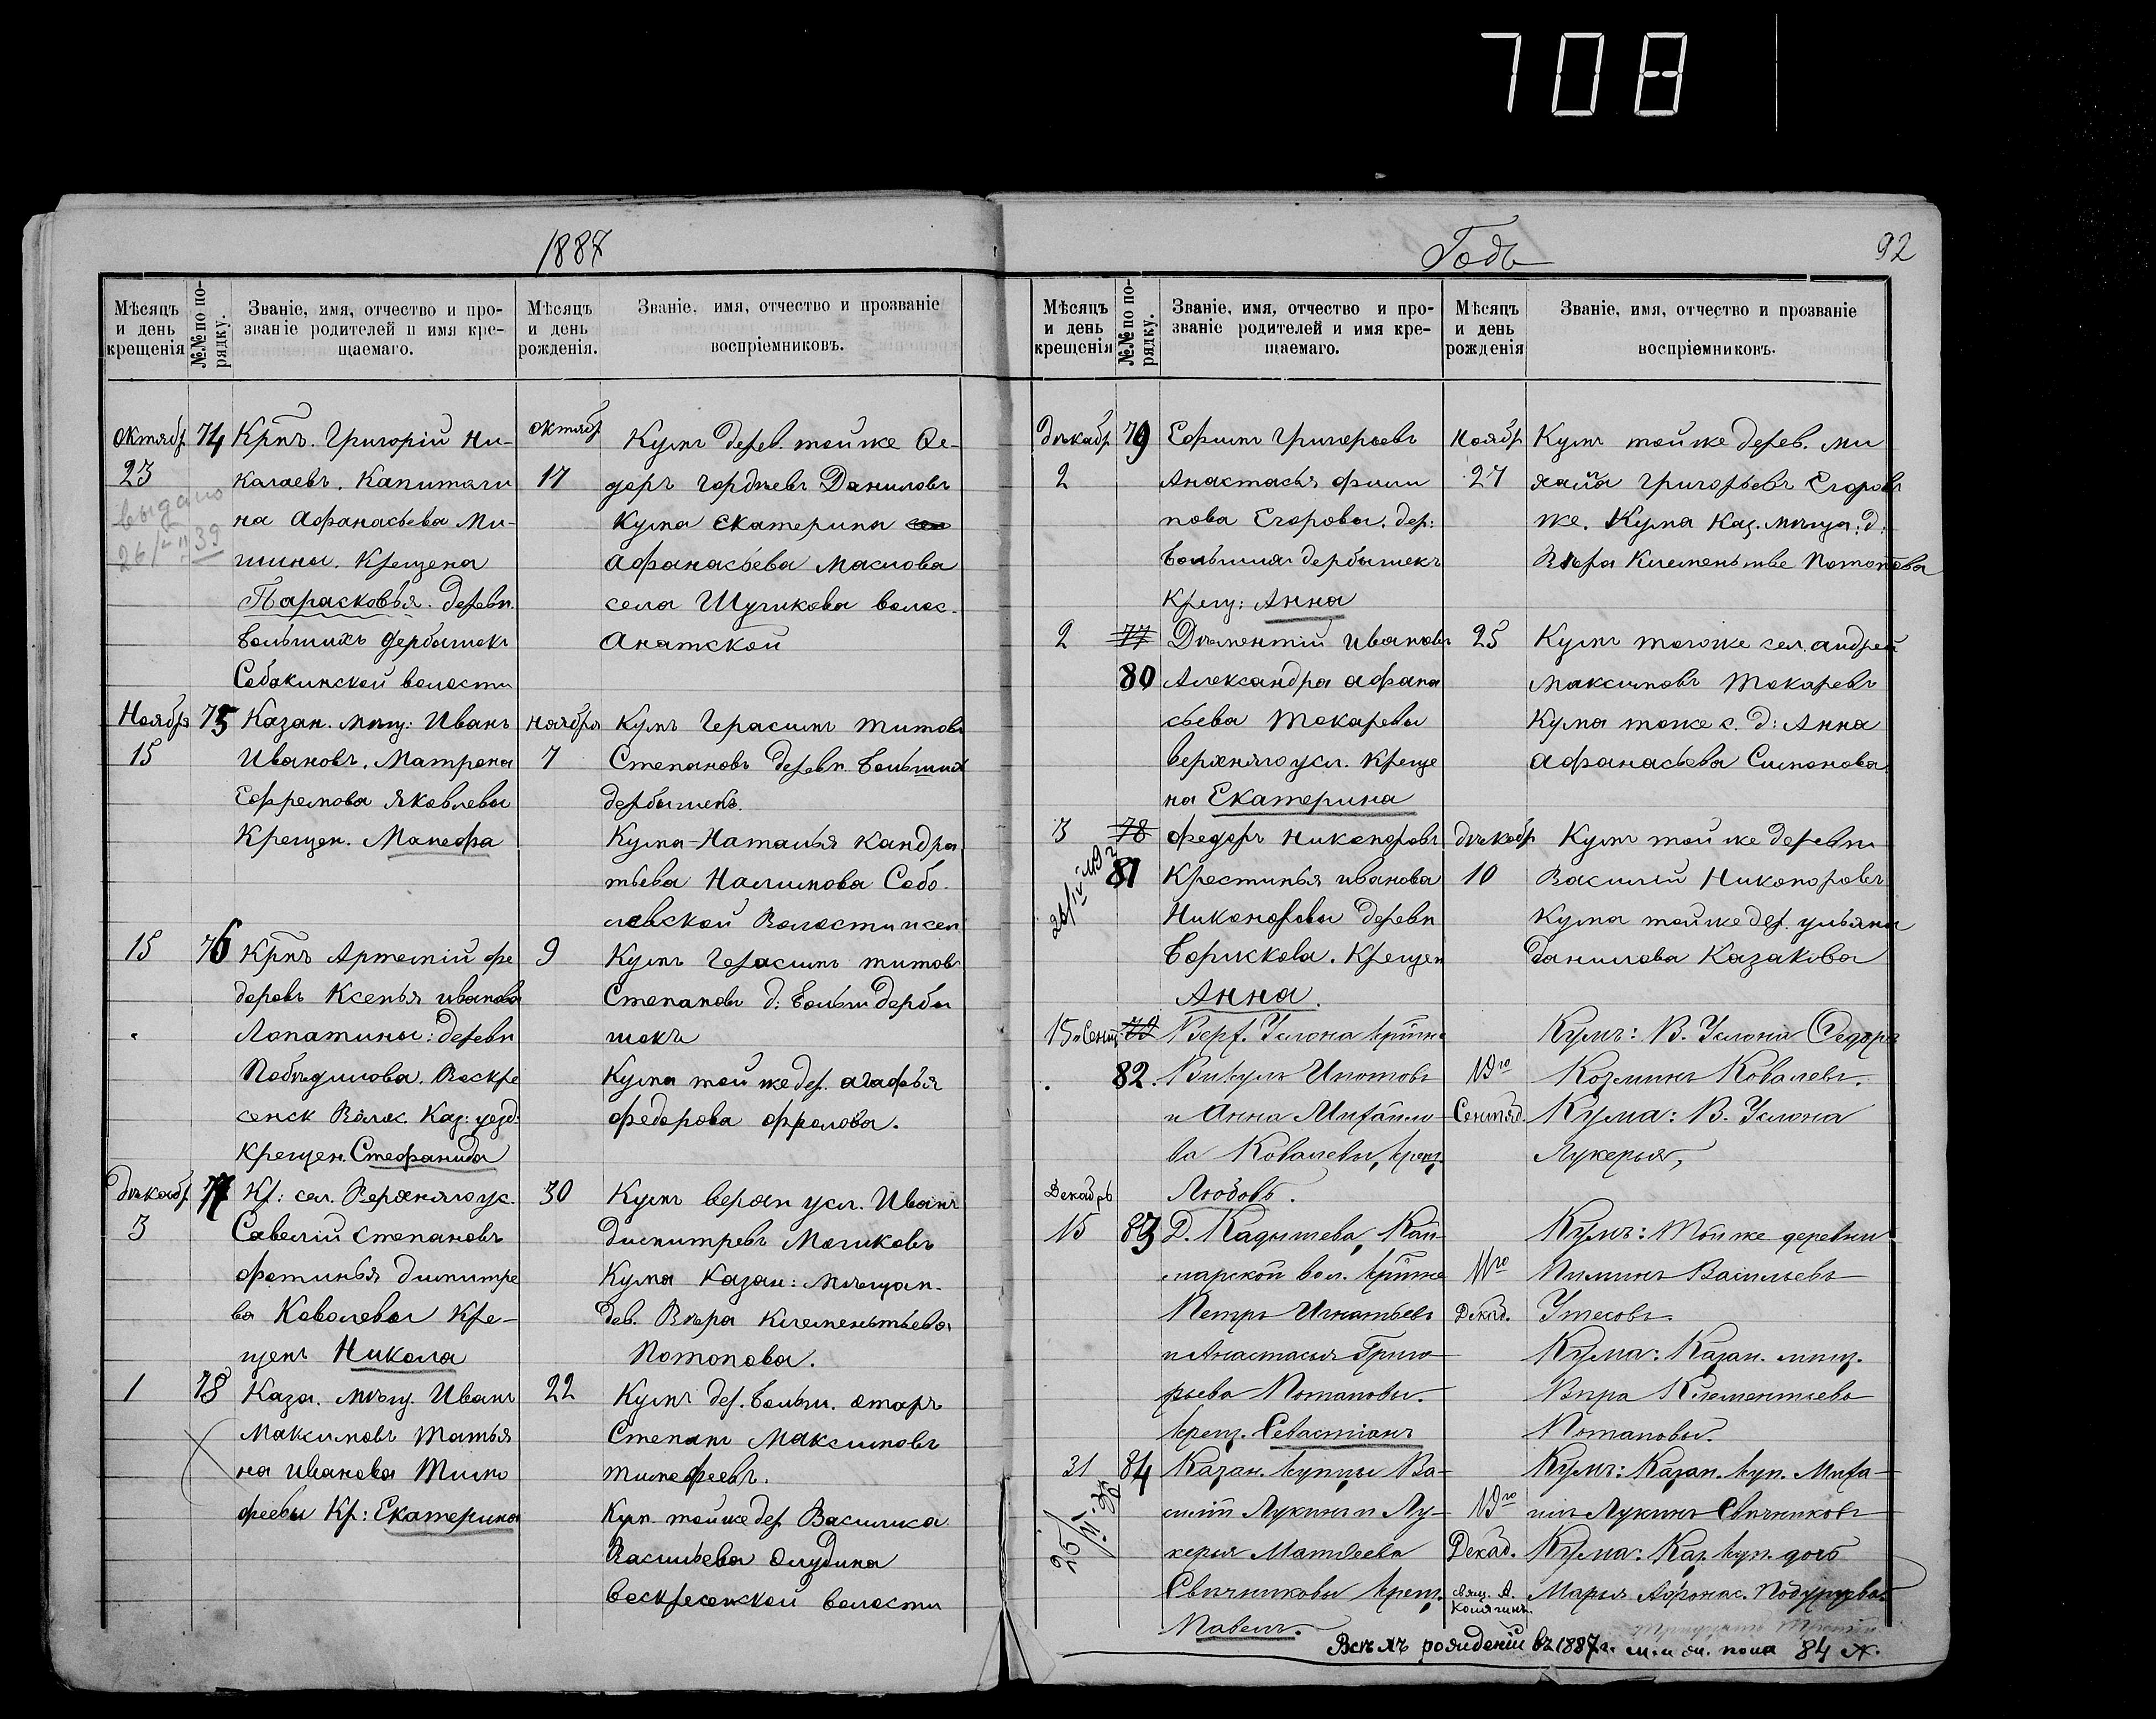 708
1887
Мѣсяцъ и день крещенія
№№ по порядку.
Званіе, имя, отчество и про-
званіе родителей и имя кре-
щаемаго.
Мѣсяцъ и день рожденія.
Званіе, имя, отчество и прозваніе
воспріемниковъ.
Октябр 23
74
выдано
26/II 39
Крпъ. Григорій Ни-
калаевъ. Капитали
на Афанасьева Ми-
шины. Крещена
Парасковья. деревн.
Большихъ дербышекъ
Собакинской волости
октябр 17
Кумъ дерев. тойже Ѳе-
доръ Гордѣевъ Даниловъ
Кума Екатерина
Афанасьева Маслова
села Шушкова волос.
Анатской
Ноября 15
75
Казан. мѣщ: Иванъ
Ивановъ. Матрона
Ефремова Яковлевы
Крещен. Манефа
ноября 7
Кумъ Герасимъ титовъ
Степановъ деревн. Больших
дербышекъ.
Кума-Наталья Кандра
тьева Налимова Собо
левской Волости и сел
15
76
Крпъ Артемій фе
доровъ Ксенья иванова
Лопатины: деревн
Побѣдилова. Воскре
сенск Волос. Каз: уезд.
крещен. Стефанида
9
Кумъ Герасимъ титовъ
Степановъ д: больш дербы
шекъ
Кума тойже дер. агафья
федорова фролова.
Дѣкабр 3
77
Кр: сел. Верхняго ус.
Савелій степановъ
фотинья димитре
ва Ковалевы Кре-
щенъ Никола
30
Кумъ верхн усл. Иванъ
димитревъ Моликовъ
Кума Казан: мѣщан.
дев. Вѣра Клеменьтьева
Потопова.
1
78
Каза. мѣщ. Иванъ
Максимовъ татья
на иванова Тимо
феевы Кр: Екатерина
22
Кумъ дер. Больш. отаръ
Степанъ Максимовъ
тимофеевъ.
Кум. тойже дер Василиса
Васильева Олудина
воскресенской волости
Годъ
92
Мѣсяцъ и день крещенія
№№ по порядку.
Званіе, имя, отчество и про-
званіе родителей и имя кре-
щаемаго.
Мѣсяцъ и день рожденія
Званіе, имя, отчество и прозваніе
воспріемниковъ.
Дѣкабр 2
79
Ефимъ григорьевъ
Анастасья фили
пова Егоровы. дер:
Большия дербышекъ
Крещ: Анна
Ноябр 27
Кумъ тойже дерев. ми
хайла григорьевъ Егоровъ
же. Кума Каз. мѣща: д:
Вѣра Клеменьтье Потопова
2
77
80
Дѣментій иванов
Александра афана
сьева Токаревы
верхняго усл. Креще
на Екатерина
25
Кумъ тогоже сел. андрей
Максимовъ Токаревъ
Кума тоже с. д: Анна
Афанасьева Симонова
3
78
81
федоръ Никаноровъ
Крестинья иванова
Никоноровы деревн
Борискова. Крещен
Анна.
дѣкабр 10
Кумъ той же деревни
Василій Никоноровъ
Кума тойже дер. ульяна
данилова Казакова
15 Сент.
79
82.
Верх. Услона крпне
Викулъ Ипатовъ
и Анна Михайло-
ва Ковалевы, крещ.
Любовь.
Сентяб.
Кумъ: В. Услона Ѳедоръ
Козминъ Ковалевъ.
Кума: В. Услона
Лукерья,
Декабрь 15
83
Д. Кадышева, Кай-
марской вол. крпне
Петръ Игнатьевъ
и Анастасья Григо-
рьева Потаповы.
крещ. Севастіанъ
11го Декаб.
Кумъ: Той же деревни
Пименъ Васильевъ
Утесовъ.
Кума: Казан. мѣщ.
Вѣра Клементьева
Потаповы.
31
84
Казан. купцы Ва-
силій Лукинъ и Лу-
керья Матвеева
Свѣчниковы крещ.
Павелъ.
Декаб.
свящ. А.
Кумъ: Казан. куп. Миха-
илъ Лукинъ Свѣчниковъ
Кума: Каз. куп. дочь
Марья Афонас. Подуруева
Всѣхъ рожденій въ 1887 г. м. и ж. пола 84 ж.